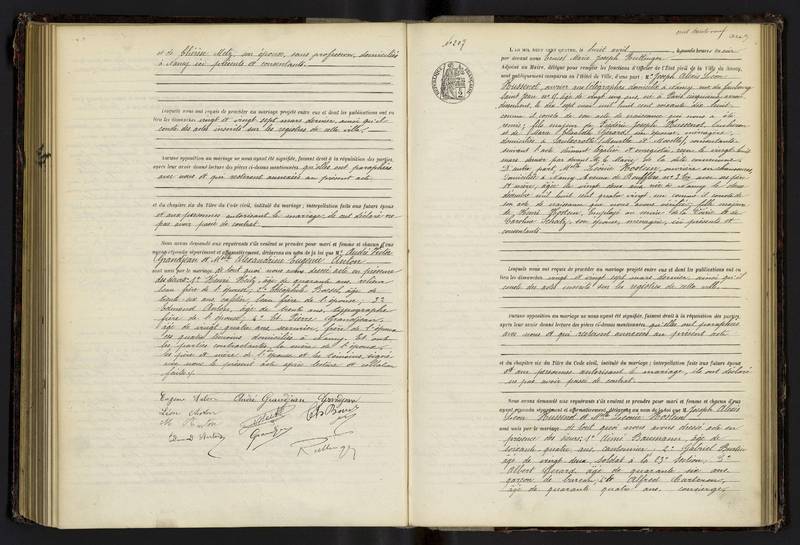 et de Thérèse Metz son épouse, sans profession, domiciliés
à Nancy ici présents et consentants.
Lesquels nous ont requis de procéder au mariage projeté entre eux et dont les publications ont eu
lieu les dimanches vingt et vingt sept mars dernier, ainsi qu'il
conste des actes inscrits sur les registres de cette ville.
Aucune opposition au mariage ne nous ayant été signifiée, faisant droit à la réquisition des parties,
après leur avoir donné lecture des pièces ci-dessus mentionnées, qu'elles ont paraphées
avec nous et qui resteront annexées au présent acte
et du chapitre six du Titre du Code civil, intitulé du mariage; interpellation faite aux futurs époux
et aux personnes autorisant le mariage, ils ont déclaré ne
pas avoir passé de contrat.
Nous avons demandé aux requérants s'ils veulent se prendre pour mari et femme et chacun d'eux
ayant répondu séparément et affirmativement, déclarons au nom de la loi que Mr André Victor
Grandjean et Melle Alexandrine Eugénie Anton
sont unis par le mariage de tout quoi nous avons dressé acte en présence
des sieurs: 1° Henri Holtz, âge de quarante ans,
beau frère de l'époux; 2° Théophile Bossel, âge de
trente six ans cafetier, beau frère de l'épouse; 3°
Edmond Antoni, âge de trente ans, typographe
frère de l'époux; 4° et Pierre Grandjean,
âge de vingt quatre ans serrurier, frère de l'époux
ces quatre témoins domiciliés à Nancy. Et ont
les parties contractantes, la mère de l'époux,
les père et mère de l'épouse et les témoins, signé
avec nous le présent acte après lecture et collation
faites.
André Grandjean Grandjean
Grandjean
N° 207
L'AN MIL NEUF CENT QUATRE, le huit avril à quatre heures du soir
par devant nous Ernest Marie Joseph
Adjoint au Maire, délégué pour remplir les fonctions d'Officier de l'État civil de la Ville de Nancy,
sont publiquement comparus en l'Hôtel de Ville, d'une part: Mr Joseph Alexis Léon
Hussenot, ouvrier aux télégraphes domicilié à Nancy rue du faubourg
Saint Jean n° 11, âgé de vingt cinq ans, né à Paris cinquième arron-
dissement, le dix sept mai mil huit cent soixante dix huit
comme il conste de son acte de naissance qui nous a été
remis; fils majeur de Joseph Hussenot,
et de Marie Elisabeth Gérard son épouse, ménagère,
domiciliés à (Meurthe et Moselle), consentants
suivant l'acte dûment légalisé et enregistré reçu le vingt huit
mars dernier par devant Mr le Maire de la dite commune
D'autre part, Melle Léonie Hostein, ouvrière en chaussures
domiciliée à Nancy Avenue de Boufflers n° 2 bis avec ses père
et mère, âgée de vingt deux ans née à Nancy le deux
décembre mil huit cent quatre vingt un comme il conste de
son acte de naissance que nous avons vérifié; fille majeure
de Henri Hostein, employé au service de la Voirie et de
Caroline Schatz, son épouse, ménagère, ici présents et
consentants.
Lesquels nous ont requis de procéder au mariage projeté entre eux et dont les publications ont eu
lieu les dimanches vingt et vingt sept mars dernier ainsi qu'il
conste des actes inscrits sur les registres de cette ville.
Aucune opposition au mariage ne nous ayant été signifiée, faisant droit à la réquisition des parties,
après leur avoir donné lecture des pièces ci-dessus mentionnées, qu'elles ont paraphées
avec nous et qui resteront annexées au présent acte
et du chapitre six du Titre du Code civil, intitulé du mariage; interpellation faite aux futurs époux
et aux personnes autorisant le mariage, ils ont déclaré
ne pas avoir passé de contrat.
Nous avons demandé aux requérants s'ils veulent se prendre pour mari et femme et chacun d'eux
ayant répondu séparément et affirmativement, déclarons au nom de la loi que Mr Joseph Alexis
Léon Hussenot et Melle Léonie Hostein
sont unis par le mariage de tout quoi nous avons dressé acte en
présence des sieurs: 1° Aimé Baumann, âgé de
soixante quatre ans, cantonnier; 2° Gabriel
âgé de vingt deux, soldat à la 23e Section; 3°
Albert Gérard âgé de quarante six ans
garçon de bureau; 4° Alfred
âgé de quarante quatre ans, concierge,